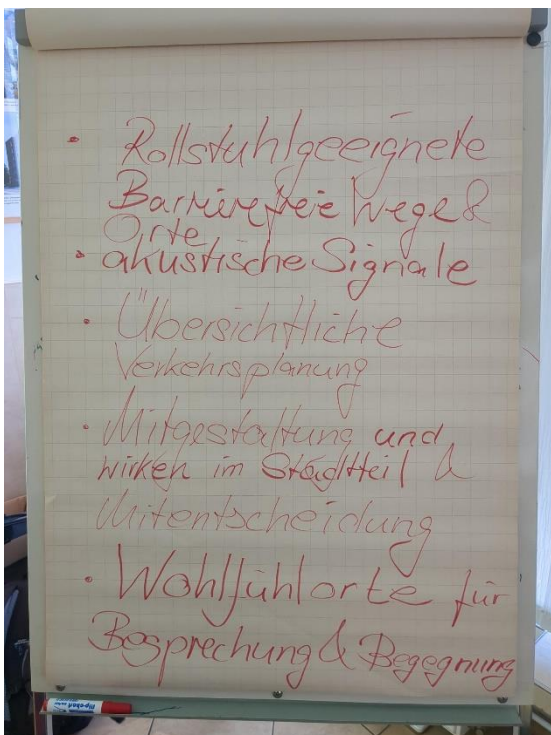 • Rollstuhlgeeignete
Barrierefreie Wege &
Orte
• akustische Signale
• Übersichtliche
Verkehrsplanung
• Mitgestaltung und
wirken im Stadtteil &
Mitentscheidung
• Wohlfühlorte für
Besprechung & Begegnung